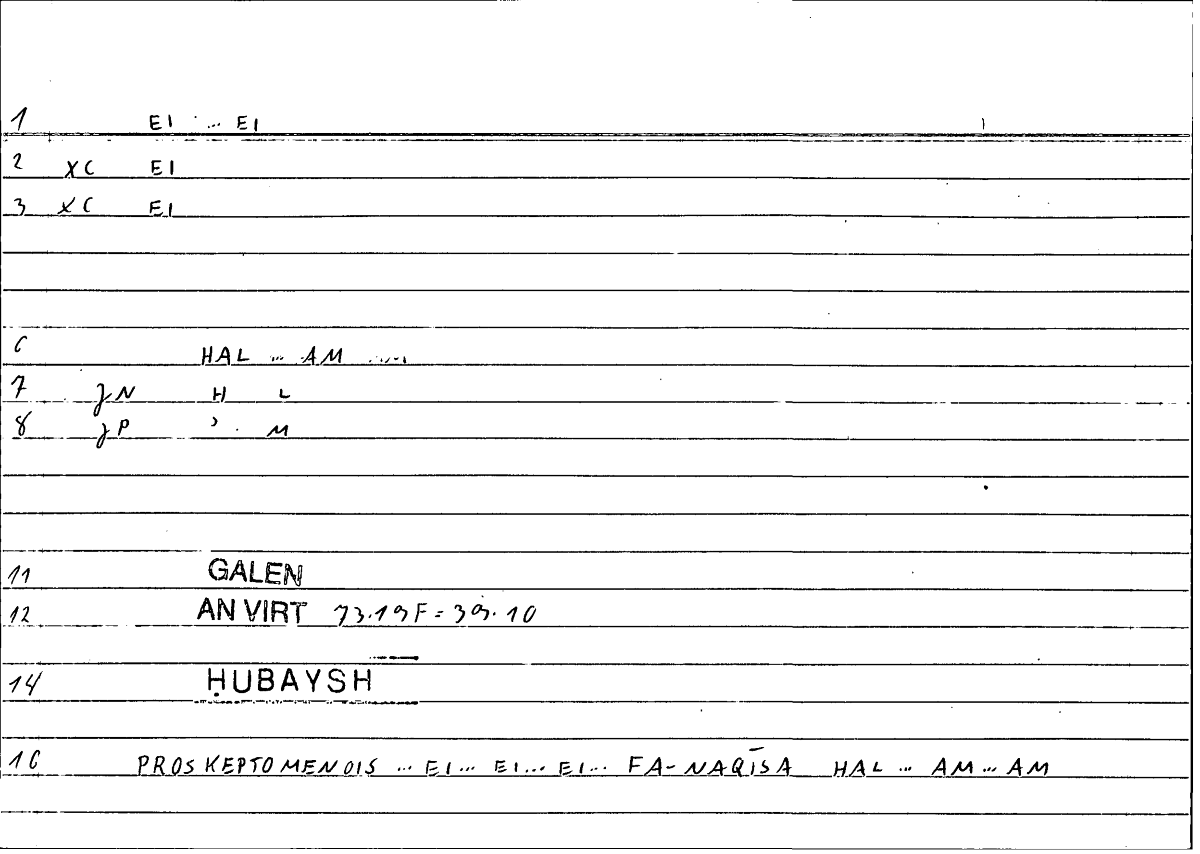 1 EI ... EI
2 XC EI
3 XC EI
6 HAL ... AM ....
7 JN H L
8 JP ʾ . M
11 GALEN
12 AN VIRT 73.19F = 39.10
14 ḤUBAYSH
16 PROSKEPTOMENOIS ... EI ... EI ... EI ... FA-NAQĪSA HAL ... AM ... AM